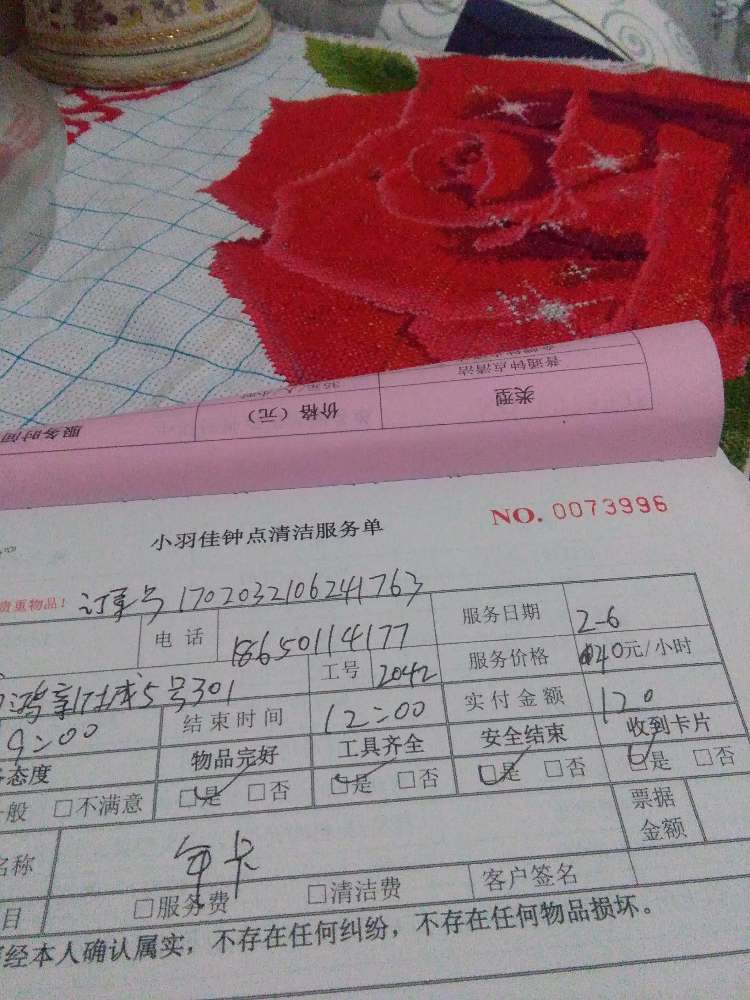 普通钟点清洁
类型 价格（元） 服务时间
小羽佳钟点清洁服务单 NO. 0073996
贵重物品！ 订单号 1702032106241763
电话 18650114177 服务日期 2-6
5号301 工号 2042 服务价格 40元/小时
9:00 结束时间 12:00 实付金额 120
态度 物品完好 工具齐全 安全结束 收到卡片
般 □不满意 □是 □否 □是 □否 □是 □否 □是 □否
名称 年卡 票据金额
目 □服务费 □清洁费 客户签名
经本人确认属实，不存在任何纠纷，不存在任何物品损坏。